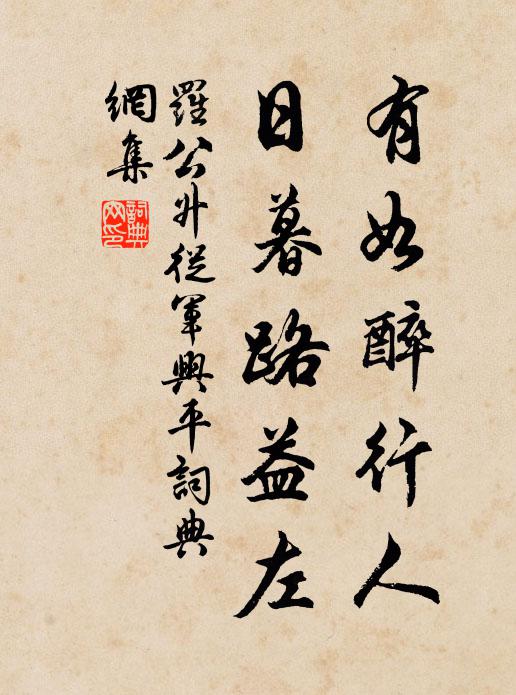 有如醉行人
日暮路益左
羅公升從軍興平詞典
網集
詞典網印